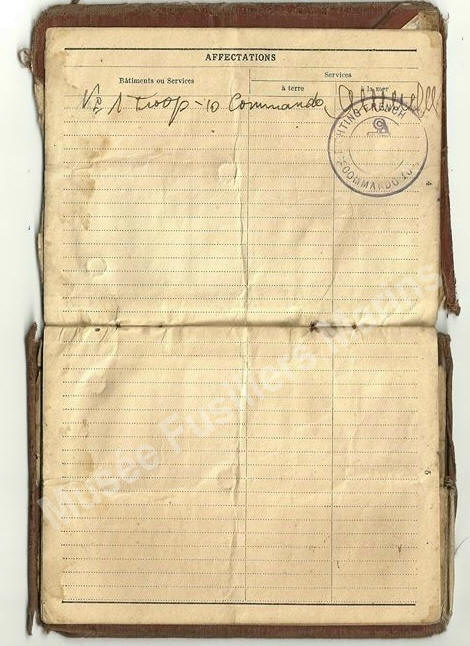 AFFECTATIONS
Bâtiments ou Services
Services
à terre
à la mer
Nº 1 Troop - 10 Commando
FIGHTING FRENCH
COMMANDO
4
5
Musée Fusiliers Marins